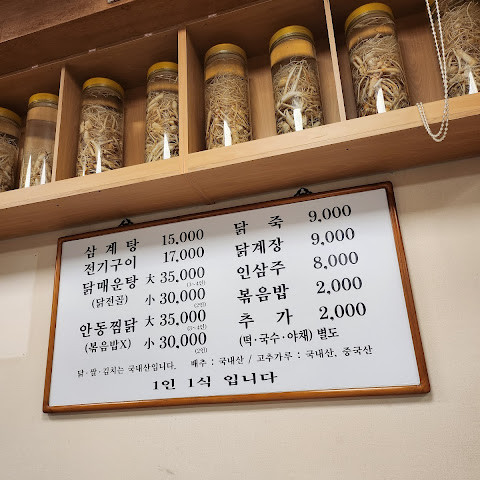 삼계탕 15,000
전기구이 17,000
닭매운탕 大 35,000
(3~4인)
(닭전골) 小 30,000
(2인)
안동찜닭 大 35,000
(3~4인)
(볶음밥X) 小 30,000
(2인)
닭죽 9,000
닭계장 9,000
인삼주 8,000
볶음밥 2,000
추가 2,000
(떡·국수·야채) 별도
닭·쌀·김치는 국내산입니다. 배추 : 국내산 / 고추가루 : 국내산, 중국산
1인 1식 입니다